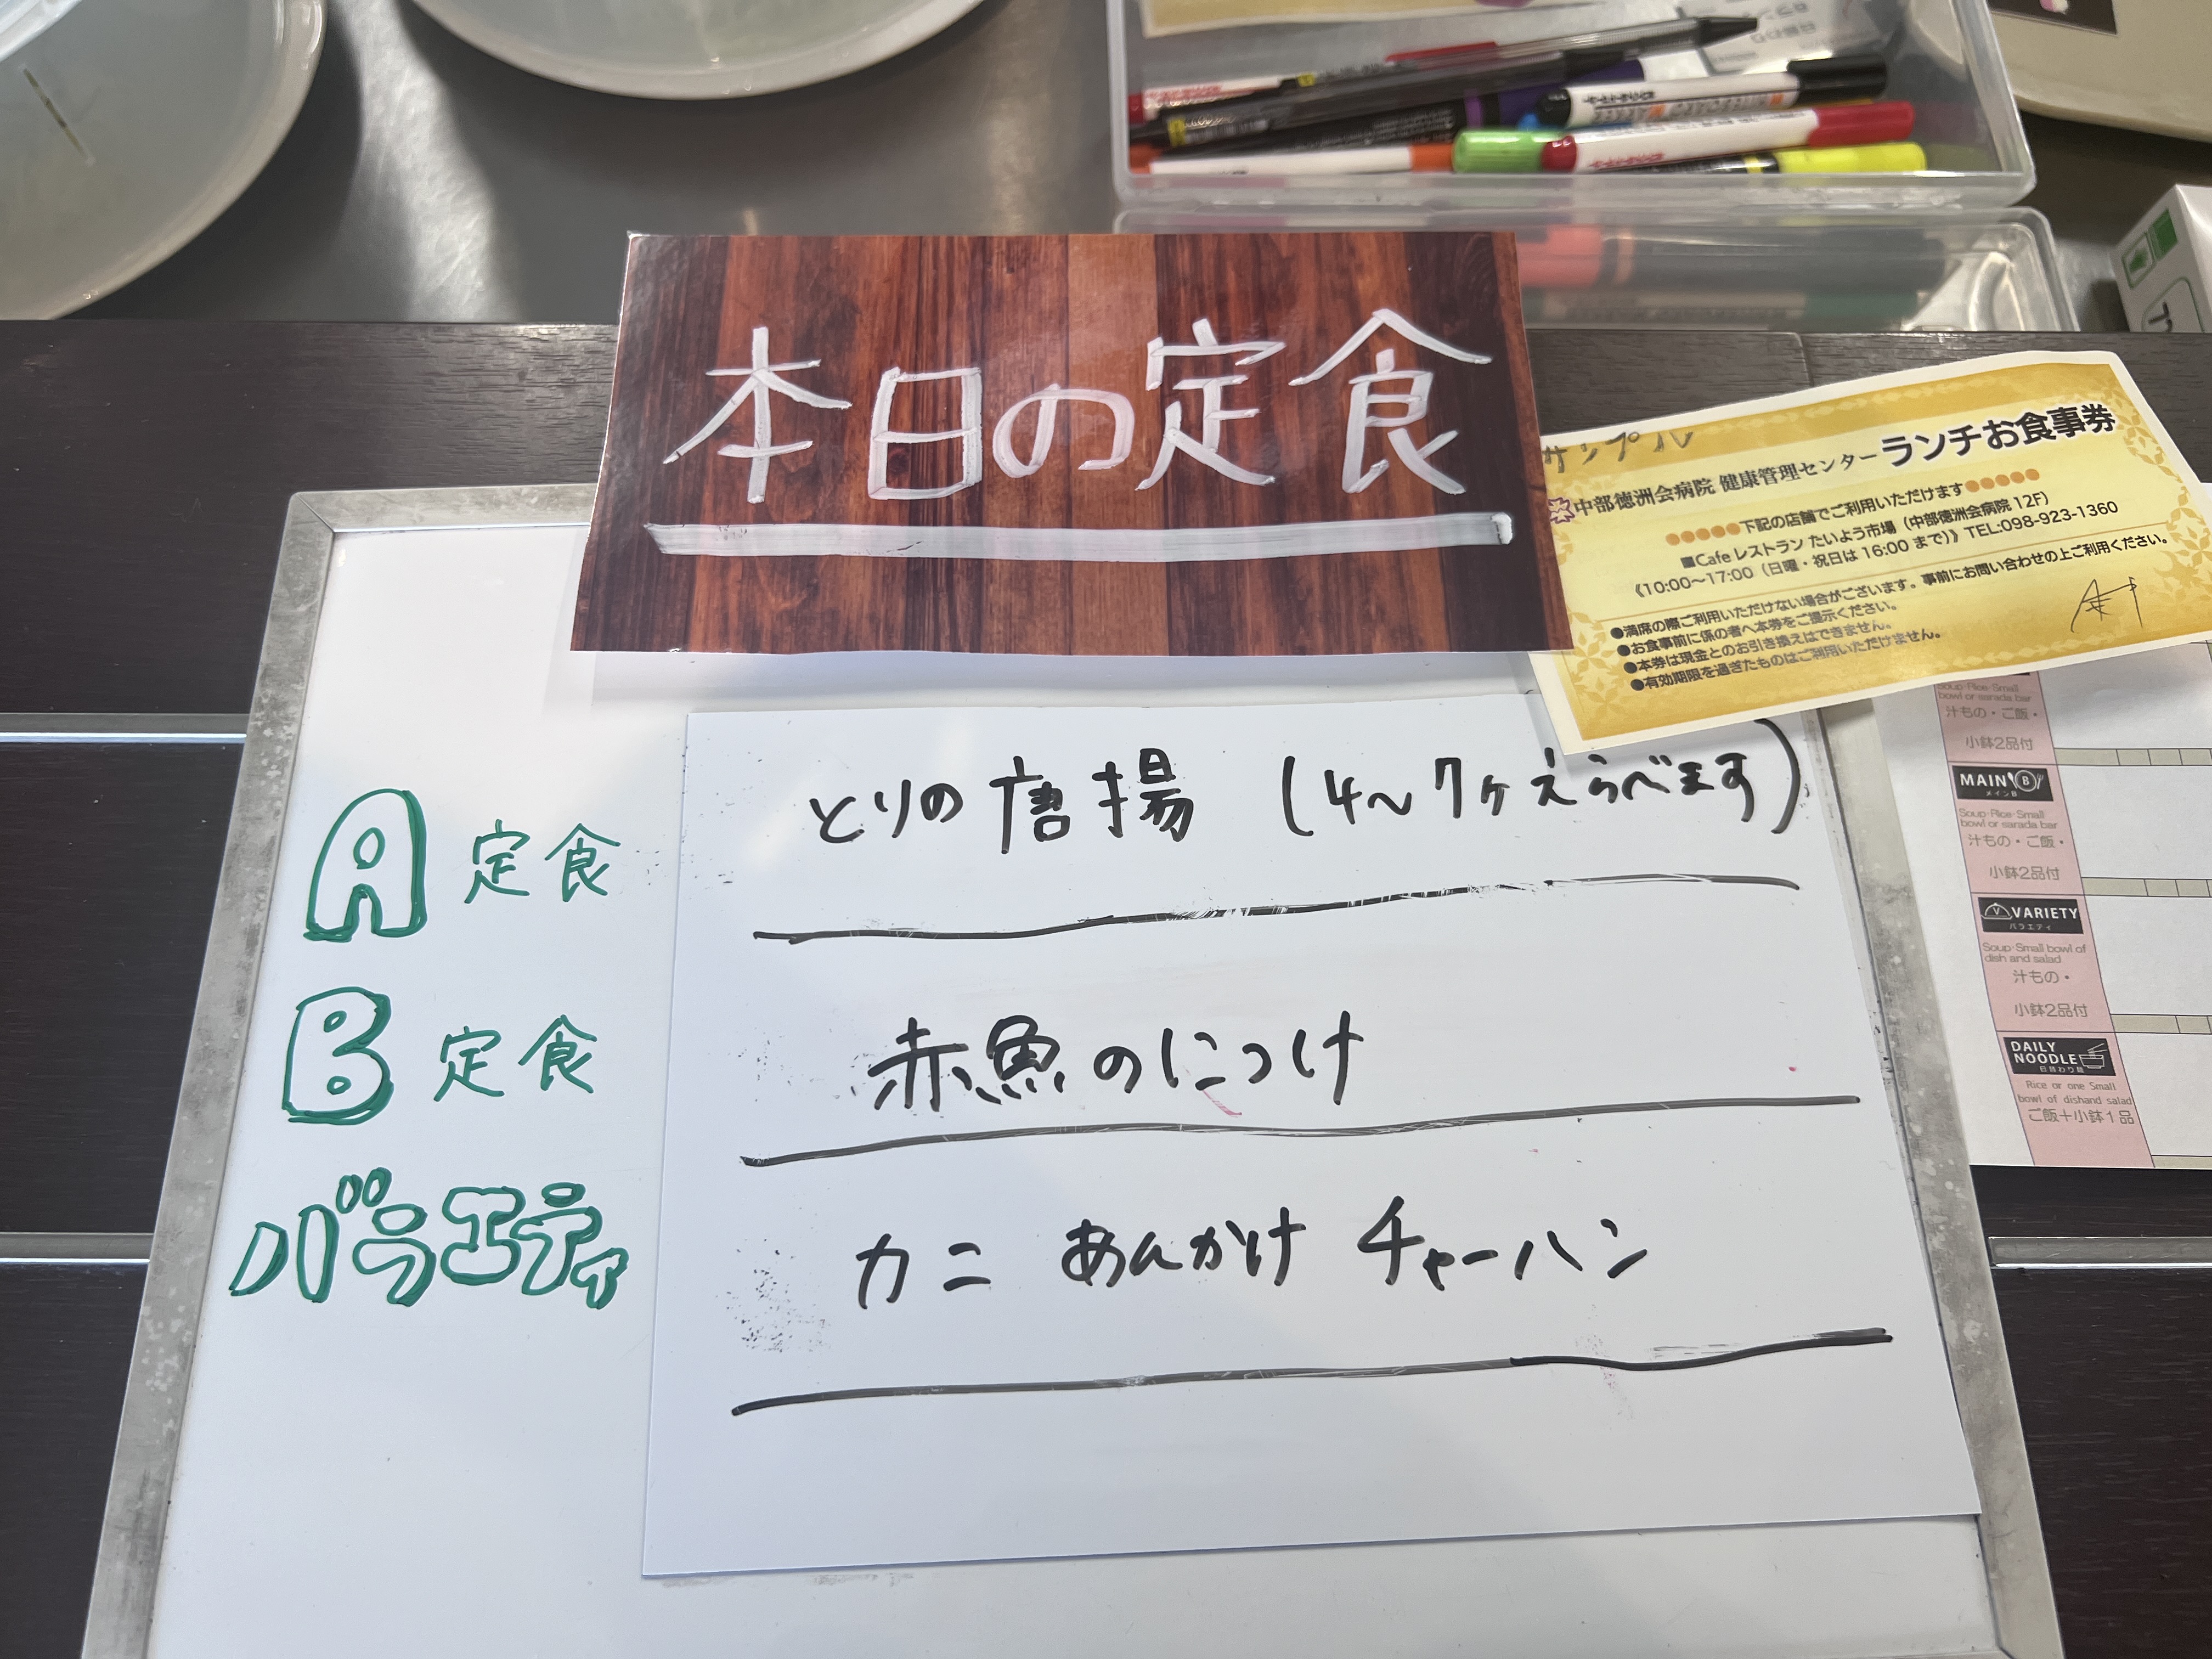 本日の定食
サンプル
中部徳洲会病院 健康管理センター ランチお食事券
●●●●●下記の店舗でご利用いただけます●●●●●
■Cafe レストラン たいよう市場（中部徳洲会病院 12F）
《10:00～17:00（日曜・祝日は 16:00 まで）》TEL:098-923-1360
●満席の際ご利用いただけない場合がございます。事前にお問い合わせの上ご利用ください。
●お食事前に係の者へ本券をご提示ください。
●本券は現金とのお引き換えはできません。
●有効期限を過ぎたものはご利用いただけません。
A 定食
とりの唐揚 (4～7ヶえらべます)
B 定食
赤魚のにつけ
バラエティ
カニ あんかけ チャーハン
Soup·Rice·Small
bowl or sarada bar
汁もの・ご飯・
小鉢2品付
MAIN B
メインB
Soup·Rice·Small
bowl or sarada bar
汁もの・ご飯・
小鉢2品付
VARIETY
バラエティ
Soup·Small bowl of
dish and salad
汁もの・
小鉢2品付
DAILY
NOODLE
日替わり麺
Rice or one Small
bowl of dishand salad
ご飯＋小鉢1品